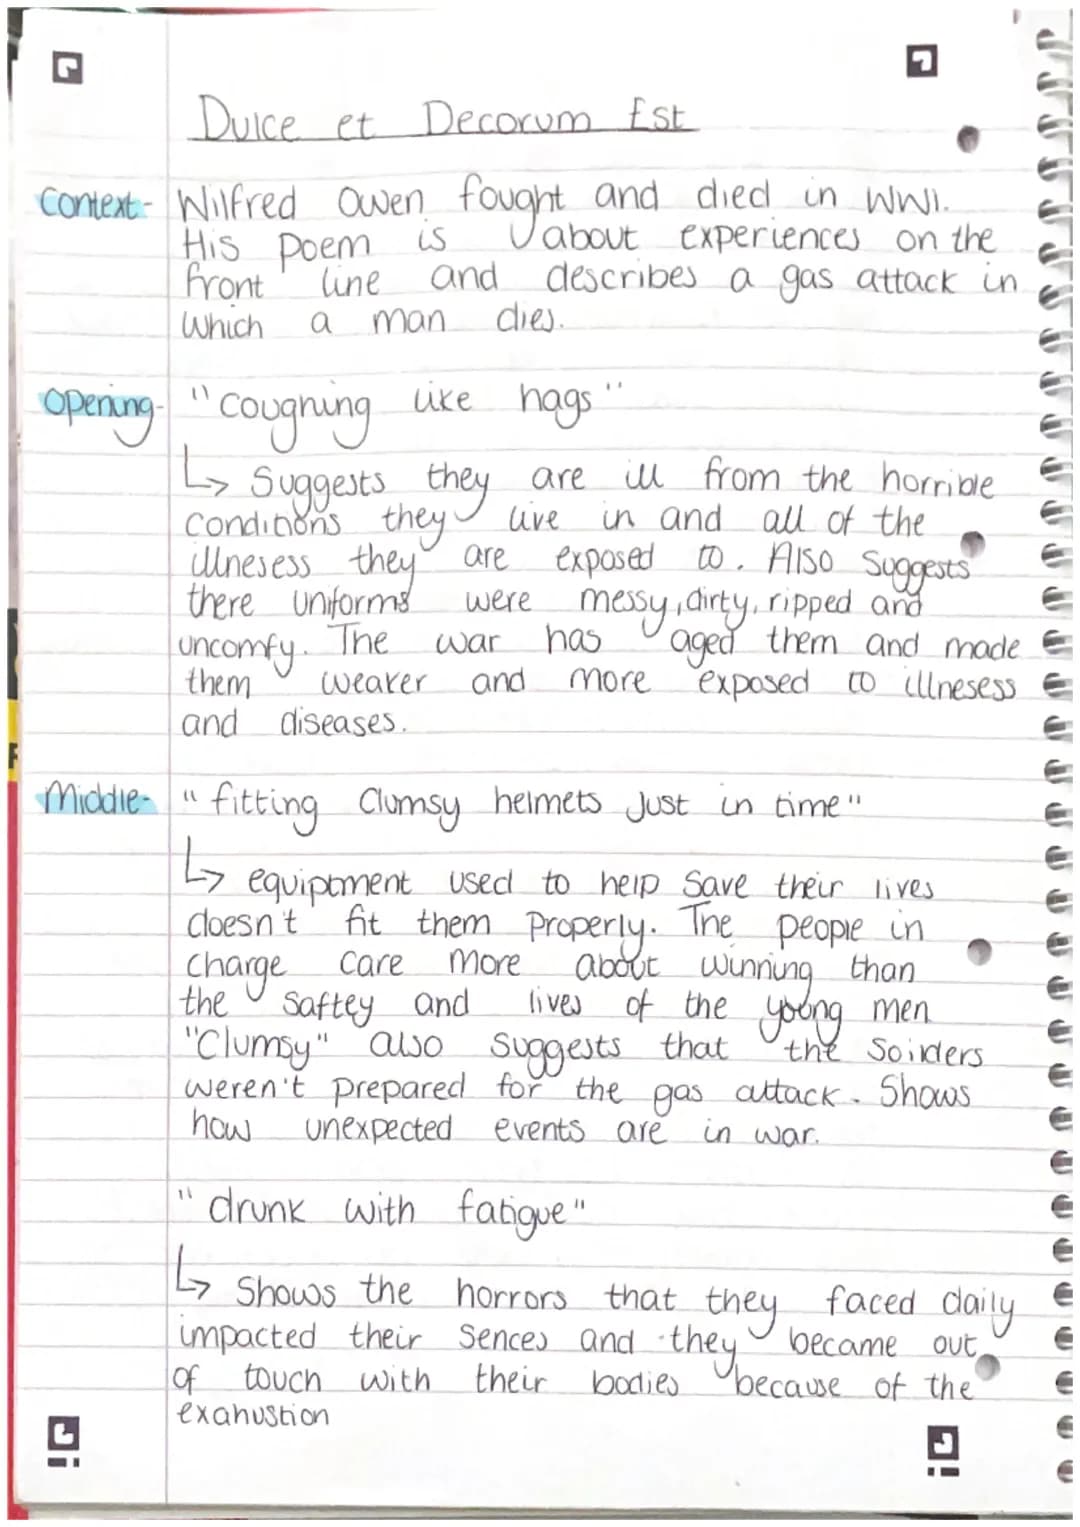 Dulce et Decorum Est
Context- Wilfred Owen fought and died in WW1.
His poem is about experiences on the
front line and describes a gas attack in
which a man dies.
Opening- "coughing like hags"
↳ Suggests they are ill from the horrible
conditions they live in and all of the
illnesess they are exposed to. Also suggests
there uniforms were messy, dirty, ripped and
uncomfy. The war has aged them and made
them weaker and more exposed to illnesess
and diseases.
Middle- "fitting clumsy helmets just in time"
↳ equiptment used to help save their lives
doesn't fit them properly. The people in
charge care more about winning than
the saftey and lives of the young men
"Clumsy" also suggests that the soilders
weren't prepared for the gas attack. Shows
how unexpected events are in war.
"drunk with fatigue"
↳ Shows the horrors that they faced daily
impacted their sences and they became out
of touch with their bodies because of the
exahustion